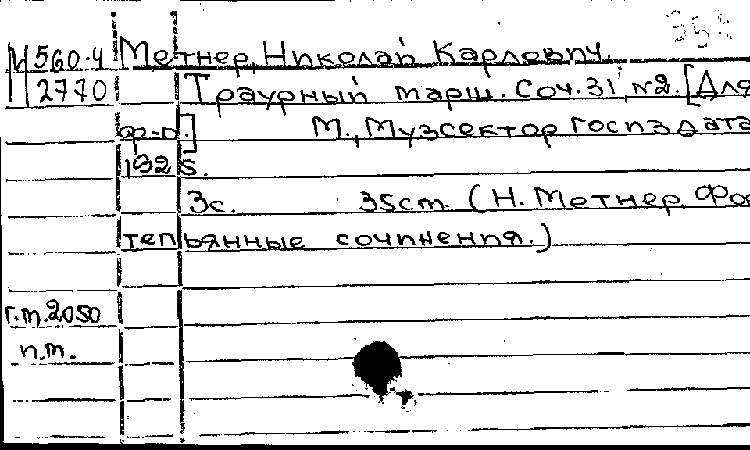 359
М 560.4 Метнер, Николай Карлович.
2770 Траурный марш. Соч. 31, №2. [Для
ф-п.] М., Музсектор Госиздата
1925.
3с. 35см. (Н. Метнер. Фор
тепьянные сочинения.)
г.т. 2050
п.т.